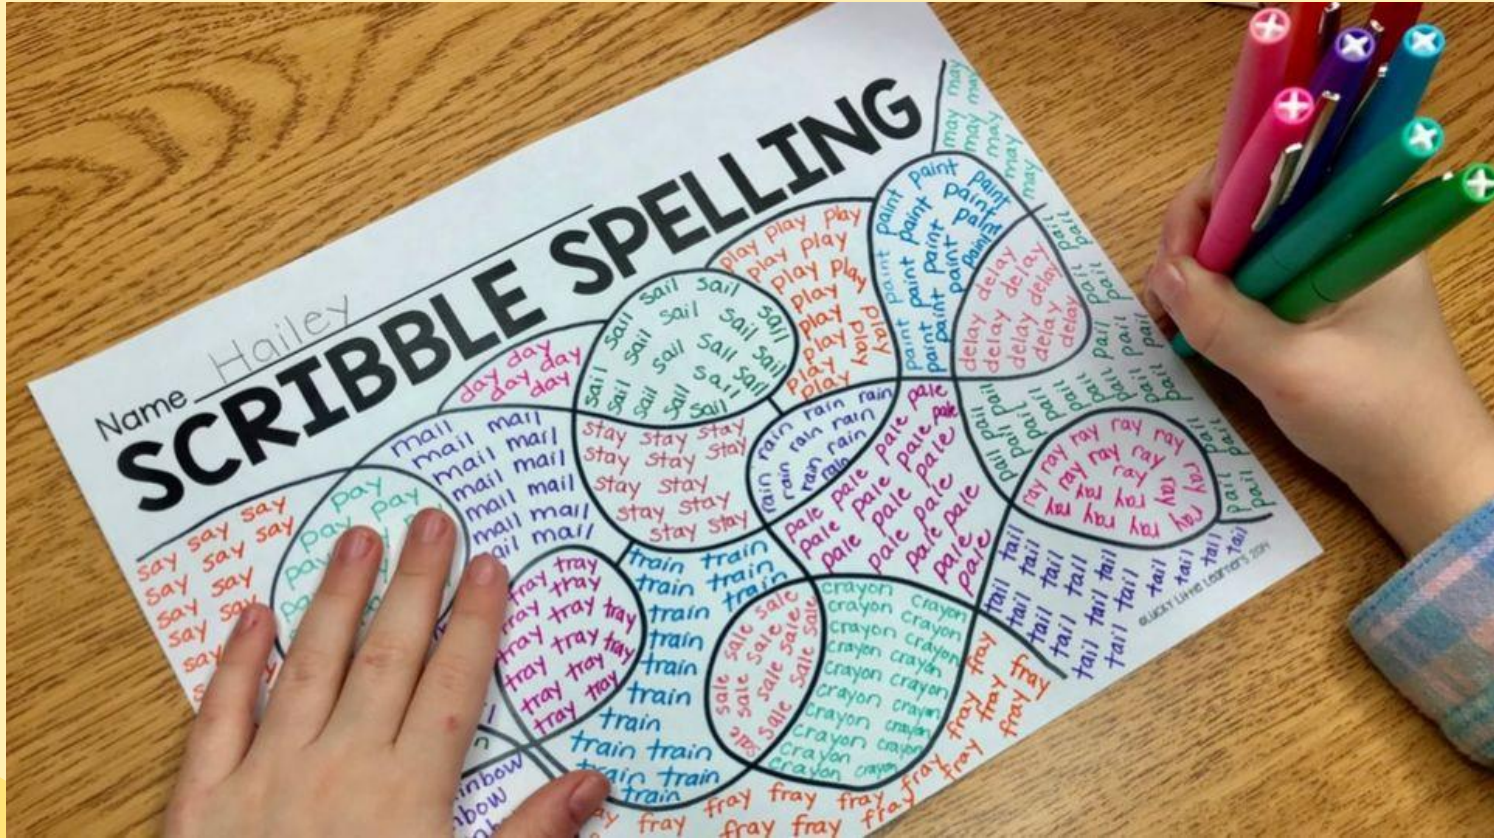 Name Hailey
SCRIBBLE SPELLING
may may
may may
may may
may
may
paint paint
paint paint
paint paint paint
paint paint paint
paint paint
paint paint
play play play
play play
play play
play
play play
play play
play
play
sail sail
sail sail sail
sail sail sail
sail sail sail
sail sail sail
sail sail
day day
day day
day
delay delay
delay delay
delay delay
delay delay
delay
pail
pail
pail pail
pail pail
pail pail pail
pail pail pail
pail pail pail
pail pail
pail pail
pail pail
mail
mail mail
mail mail
mail mail
mail mail
mail mail
mail
stay stay stay
stay stay stay
stay stay
stay stay
stay stay
rain rain
rain rain rain
rain rain rain
rain rain
pale pale
pale pale pale
pale pale pale
pale pale pale
pale pale pale
pale pale
pale
ray ray ray
ray ray ray ray
ray ray ray
ray ray ray
ray ray ray
say say say
say say say
say say
say say
say say
say
pay
pay pay
tray tray
tray
tray tray
tray tray
tray tray
tray tray
tray
train train
train train
train train
train
train
train
train
train train
train train
train
sale sale
sale sale sale
sale sale sale
sale sale sale
sale
crayon crayon
crayon crayon
crayon crayon
crayon crayon
crayon crayon
crayon crayon
crayon crayon
crayon crayon
tail tail tail
tail tail tail
tail tail tail
tail tail tail
tail tail tail
tail tail
fray
fray fray
fray fray
fray fray
fray fray fray
fray fray fray
©Lucky Little Learners 2014